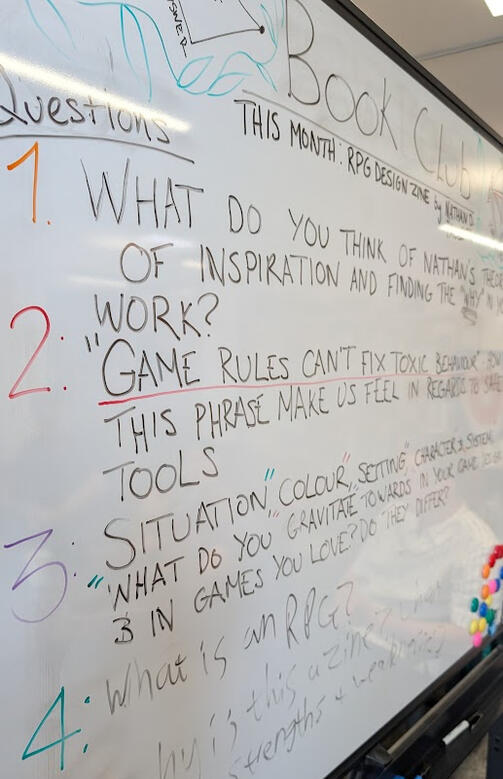 Book Club
Questions
THIS MONTH: RPG DESIGN ZINE by NATHAN D
1. WHAT DO YOU THINK OF NATHAN'S
OF INSPIRATION AND FINDING THE "WHY" IN
WORK?
2: "GAME RULES CAN'T FIX TOXIC BEHAVIOUR"
THIS PHRASE MAKE US FEEL IN REGARDS TO
TOOLS
3: SITUATION" COLOUR", SETTING", CHARACTER & SYSTEM
"WHAT DO YOU GRAVITATE TOWARDS IN YOUR GAME DESIGN
3 IN GAMES YOU LOVE? DO THEY DIFFER?
4: What is an RPG?
hy is this a zine? what
strengths + weaknesses